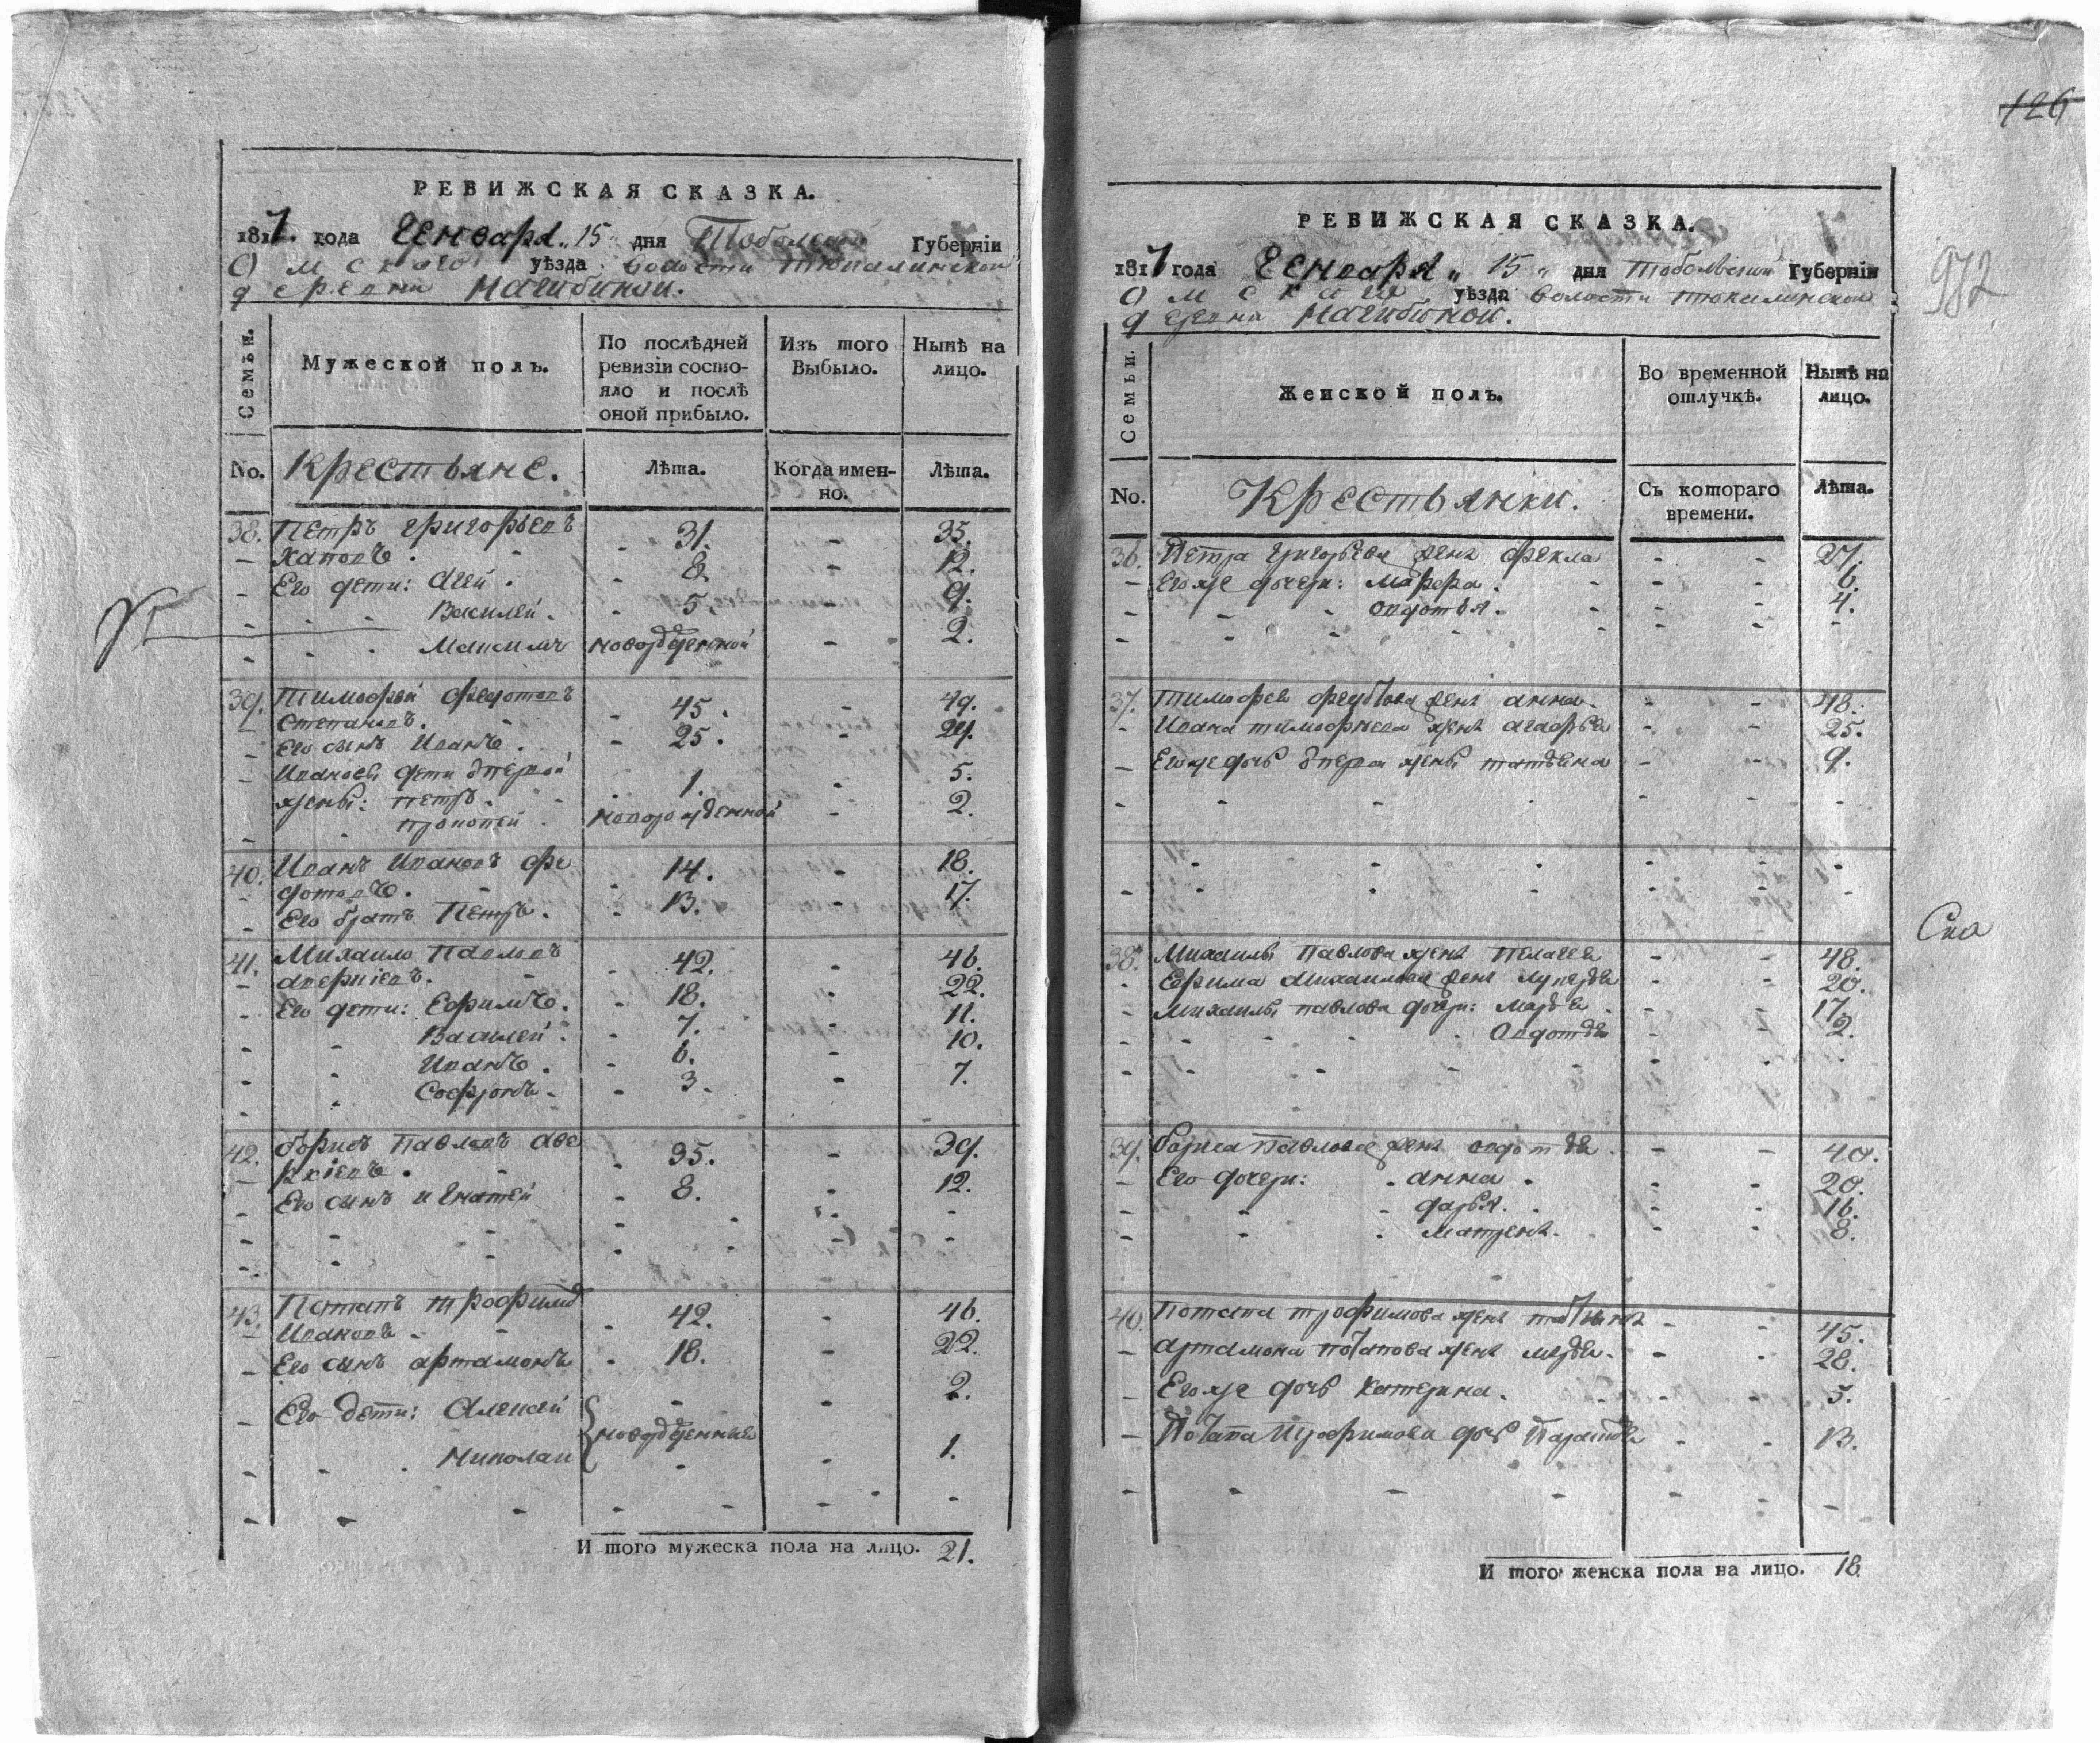 РЕВИЖСКАЯ СКАЗКА.
1817. года Генваря „ 15 „ дня Тобольской Губерніи
Омскаго уѣзда волости Тюкалинской
деревни Нагибиной.
Семьи.
Мужеской полъ.
По послѣдней ревизіи состо-
яло и послѣ оной прибыло.
Изъ того Выбыло.
Нынѣ на лицо.
No. Крестьяне. Лѣта. Когда имен-
но. Лѣта.
38. Петръ Григорьевъ 31. - 35.
Его дети: 8. - 12.
Василей. 5. 9.
Максимъ новорожденной - 2.
39. Тимофей Федотовъ 45. - 49.
Степановъ.
Его сынъ Иванъ. 25. - 29.
Ивановы дети
жены: Петръ. 1. - 5.
Прокопей новорожденной - 2.
40. Иванъ Ивановъ Фе 14. - 18.
дотовъ.
Его братъ Петръ. 13. 17.
41. Михаило Павловъ 42. - 46.
Его дети: Ефимъ. 18. - 22.
Василей. 7. - 11.
Иванъ. 6. - 10.
Софронъ. 3. - 7.
42. Борисъ Павловъ Аве 35. - 39.
ркіевъ.
Его сынъ Игнатей 8. - 12.
43. Потапъ Трофимов 42. - 46.
Ивановъ.
Его сынъ Артамонъ 18. - 22.
Его дети: Алексей - - 2.
новорожденные
Николаи - 1.
И того мужеска пола на лицо. 21.
126
972
РЕВИЖСКАЯ СКАЗКА.
1817 года Генваря „ 15 „ дня Тобольской Губерніи
Омскаго уѣзда волости Тюкалинской
деревни Нагибиной.
Семьи.
Женской полъ.
Во временной отлучкѣ.
Нынѣ на лицо.
No. Крестьянки. Съ котораго
времени. Лѣта.
36. Петра Григорьева жена Фекла - - 27.
Егоже дочери: Марфа. - - 6.
Авдотья. - - 4.
37. Тимофея Федотова жена Анна. - - 48.
Ивана Тимофеева жена Агафья - - 25.
Егоже дочь жены Татьяна - - 9.
Ска
38. Михаилы Павлова жена Пелагея - - 48.
Ефима Михаилова жена - - 20.
Михаилы Павлова дочери: Марья - 17.
Авдотья - 2.
39. Бориса Павлова жена Авдотья - - 40.
Его дочери: Анна. - - 20.
Дарья. - - 16.
Матрена. - - 8.
40. Потапа Трофимова жена - - 45.
Артамона Потапова жена - - 28.
Егоже дочь Катерина. - - 5.
Потапа Трофимова дочь - - 13.
И того женска пола на лицо. 18.